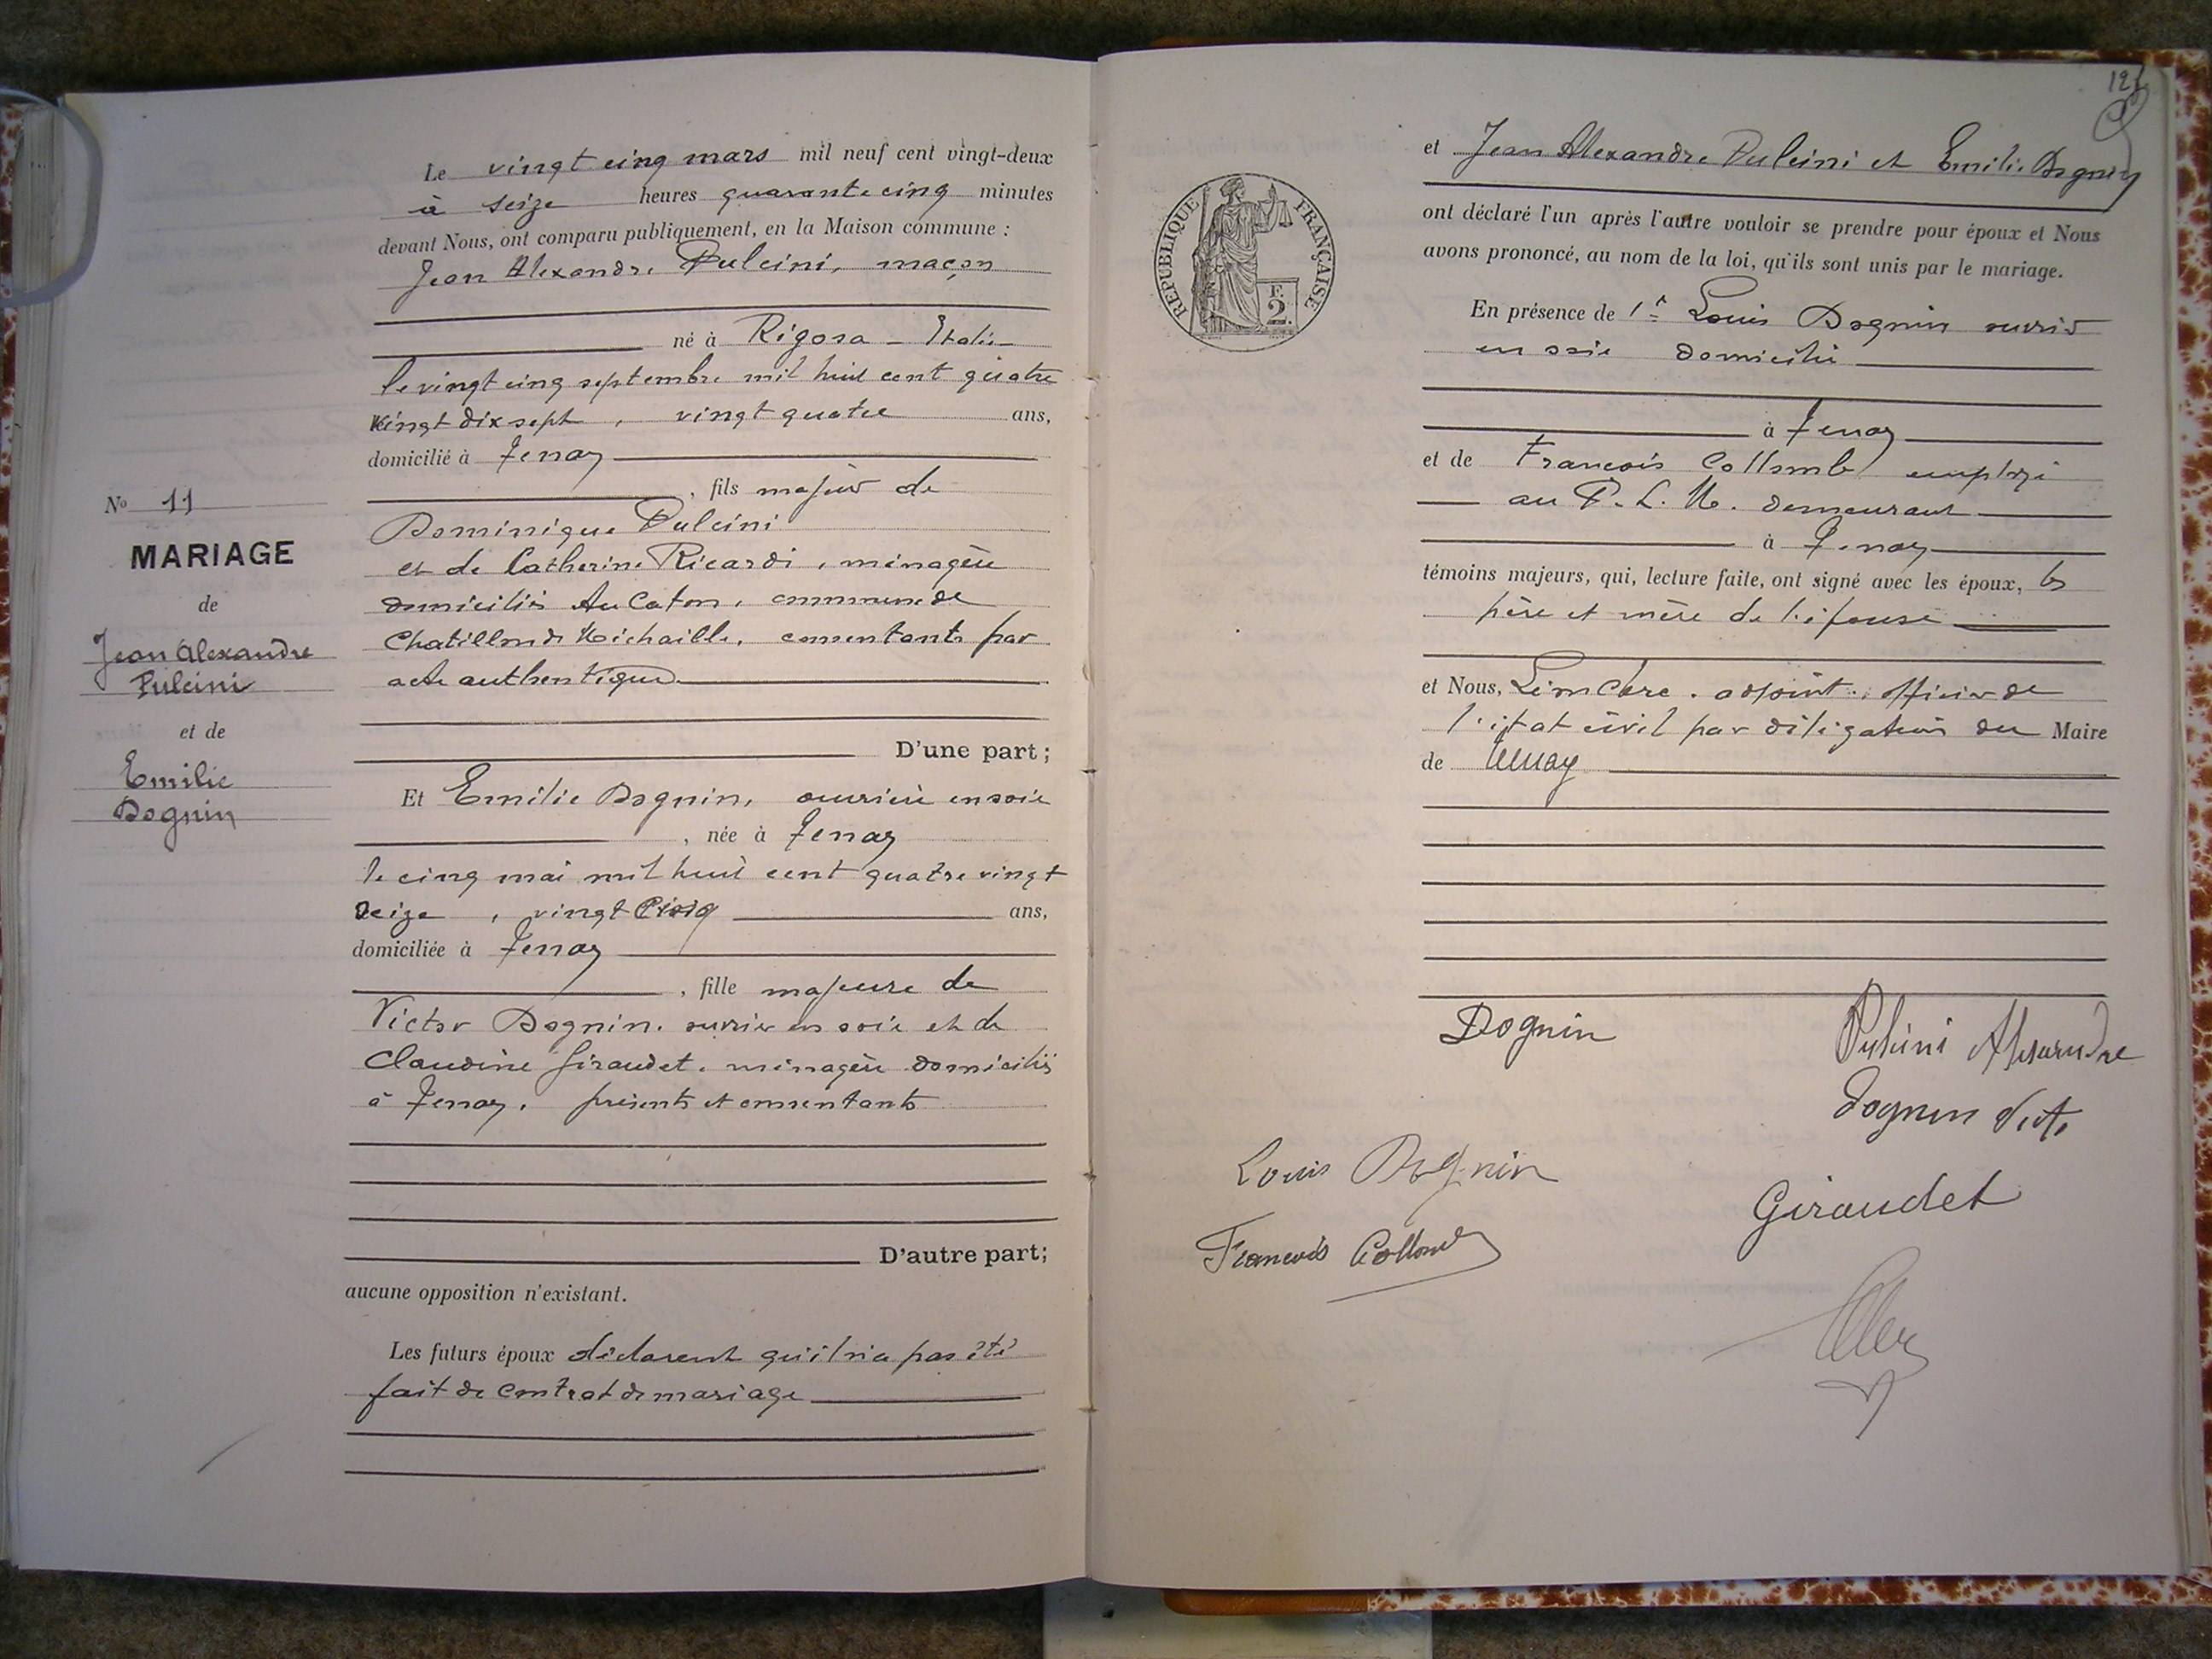 N° 11
MARIAGE
de
Jean Alexandre
Pulcini
et de
Emilie
Dognin
Le vingt cinq mars mil neuf cent vingt-deux
à seize heures quarante cinq minutes
devant Nous, ont comparu publiquement, en la Maison commune :
Jean Alexandre Pulcini, maçon
né à Rigosa - Italie -
le vingt cinq septembre mil huit cent quatre
vingt dix sept, vingt quatre ans,
domicilié à Tenay
, fils majeur de
Dominique Pulcini
et de Catherine Ricardi, ménagère
domiciliés Au Caton, commune de
Chatillon de Michaille, consentants par
acte authentique
D'une part ;
Et Emilie Dognin, ouvrière en soie
, née à Tenay
le cinq mai mil huit cent quatre vingt
seize, vingt cinq ans,
domiciliée à Tenay
, fille majeure de
Victor Dognin, ouvrier en soie et de
Claudine Giraudet, ménagère domiciliés
à Tenay, présents et consentants
D'autre part;
aucune opposition n'existant.
Les futurs époux déclarent qu'il n'a pas été
fait de contrat de mariage
12
REPUBLIQUE FRANÇAISE
F.
2.
et Jean Alexandre Pulcini et Emilie Dognin
ont déclaré l'un après l'autre vouloir se prendre pour époux et Nous
avons prononcé, au nom de la loi, qu'ils sont unis par le mariage.
En présence de 1° Louis Dognin ouvrier
en soie domicilié
à Tenay
et de François Collomb employé
au P. L. M. demeurant
à Tenay
témoins majeurs, qui, lecture faite, ont signé avec les époux, les
père et mère de l'épouse
et Nous, adjoint, officier de
l'état civil par délégation du Maire
de Tenay
Dognin
Pulcini Alexandre
Dognin
Louis Dognin
Giraudet
François Collomb